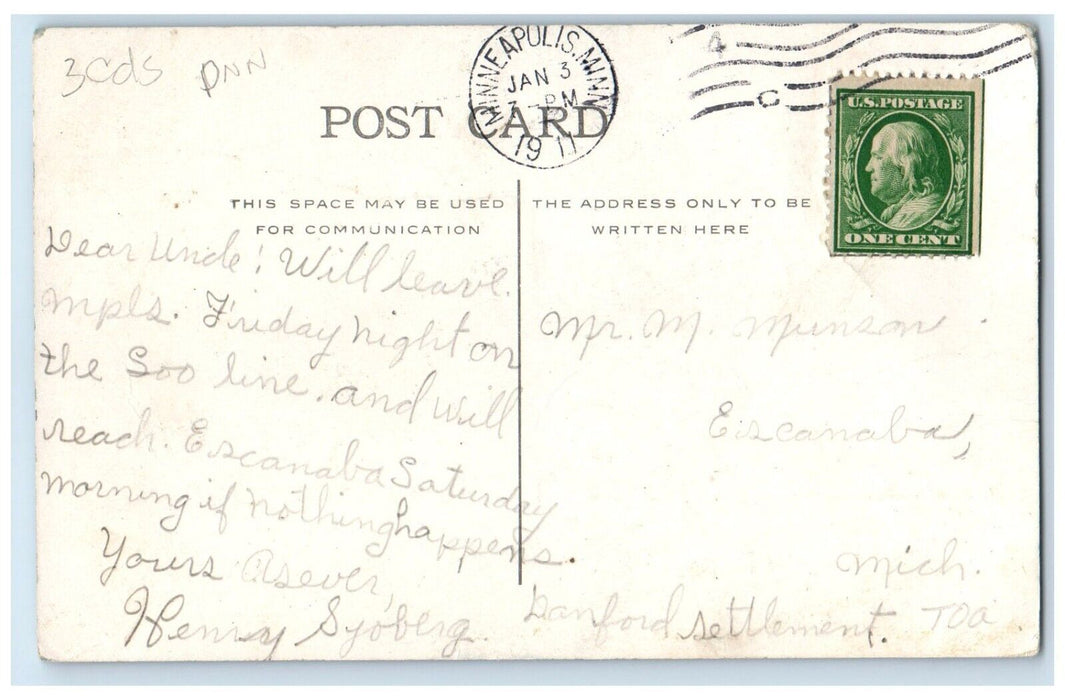 3cds DNN
MINNEAPOLIS, MINN
JAN 3
7 - PM
1911
4
C
U.S. POSTAGE
ONE CENT
POST CARD
THIS SPACE MAY BE USED
FOR COMMUNICATION
THE ADDRESS ONLY TO BE
WRITTEN HERE
Dear Uncle! Will leave.
Mpls. Friday night on
the Soo line. and will
reach. Escanaba Saturday
morning if nothing happens.
Yours As ever,
Henry Sjöberg.
Mr. M. Munson.
Escanaba,
Mich.
Danford settlement.